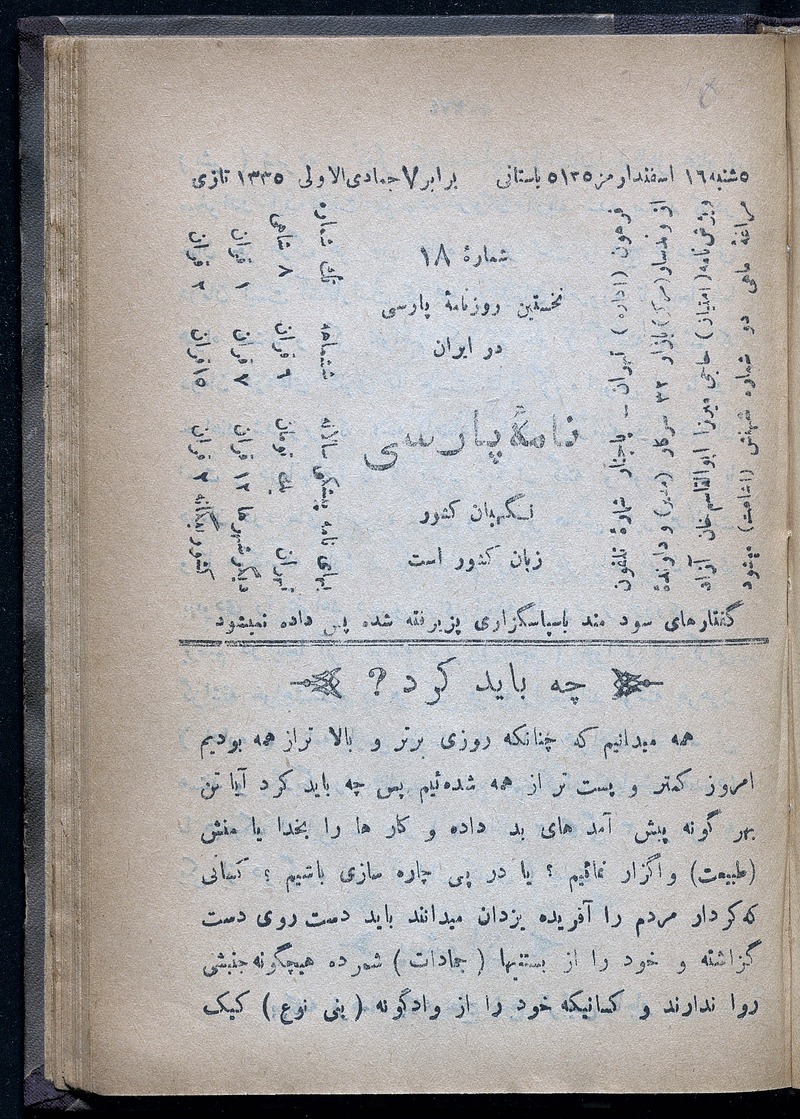 ۵شنبه ۱۶ اسفندارمز ۵۱۳۵ باستانی برابر ۷ جمادی‌الاولی ۱۳۳۵ تازی
مراغهٔ ماهی دو شماره میشود
ویژش‌نامه (امتیاز) حاجی میرزا ابوالقاسم خان آزاد
بازار ۳۲ سرکار (مدیر) و دارندهٔ
فرهون (اداره) تهران – شمارهٔ تلفون
شمارهٔ ۱۸
نخستین روزنامهٔ پارسی
در ایران
نامهٔ پارسی
نگهبان کشور
زبان کشور است
بهای نامه پیشکی سالانه ششماهه تک شماره
تهران یک تومان ۶ قران ۸ شاهی
دیگر شهرها ۱۲ قران ۷ قران ۱ قران
کشور بیگانه ۲ قران ۱۵ قران ۲ قران
گفتارهای سود مند باسپاسگزاری پزیرفته شده پس داده نمیشود
چه باید کرد؟
همه میدانیم که چنانکه روزی برتر و بالا تر از همه بودیم
امروز کمتر و پست تر از همه شده‌ئیم پس چه باید کرد آیا تن
بهر گونه پیش آمد های بد داده و کار ها را بخدا یا منش
(طبیعت) واگزار نمائیم ؟ یا در پی چاره سازی باشیم ؟ کسانی
که کردار مردم را آفریده یزدان میدانند باید دست روی دست
گزاشته و خود را از بستفیها ( جمادات ) شمرده هیچگونه جنبشی
روا ندارند و کسانیکه خود را از وادگونه ( بنی نوع ) کپک